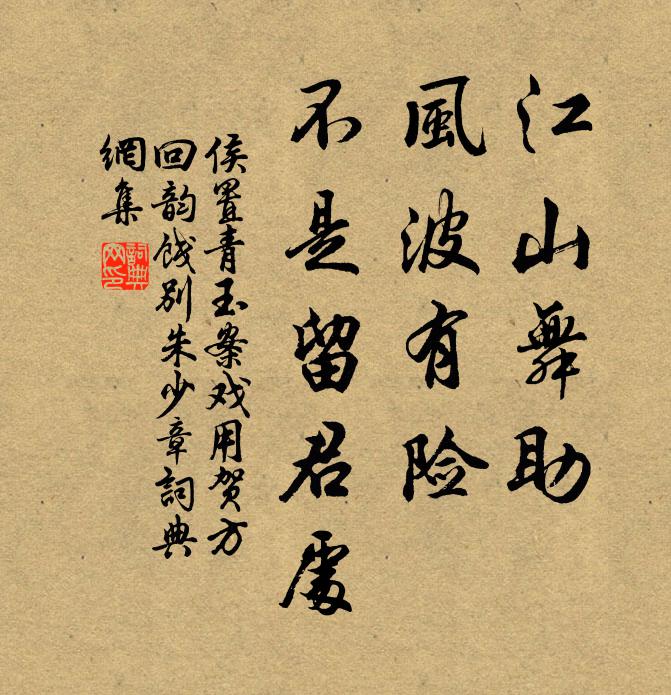 江山舞助
風波有险
不是留君處
侯置青玉案戏用贺方
回韵饯别朱少章詞典
網集
詞典
网印